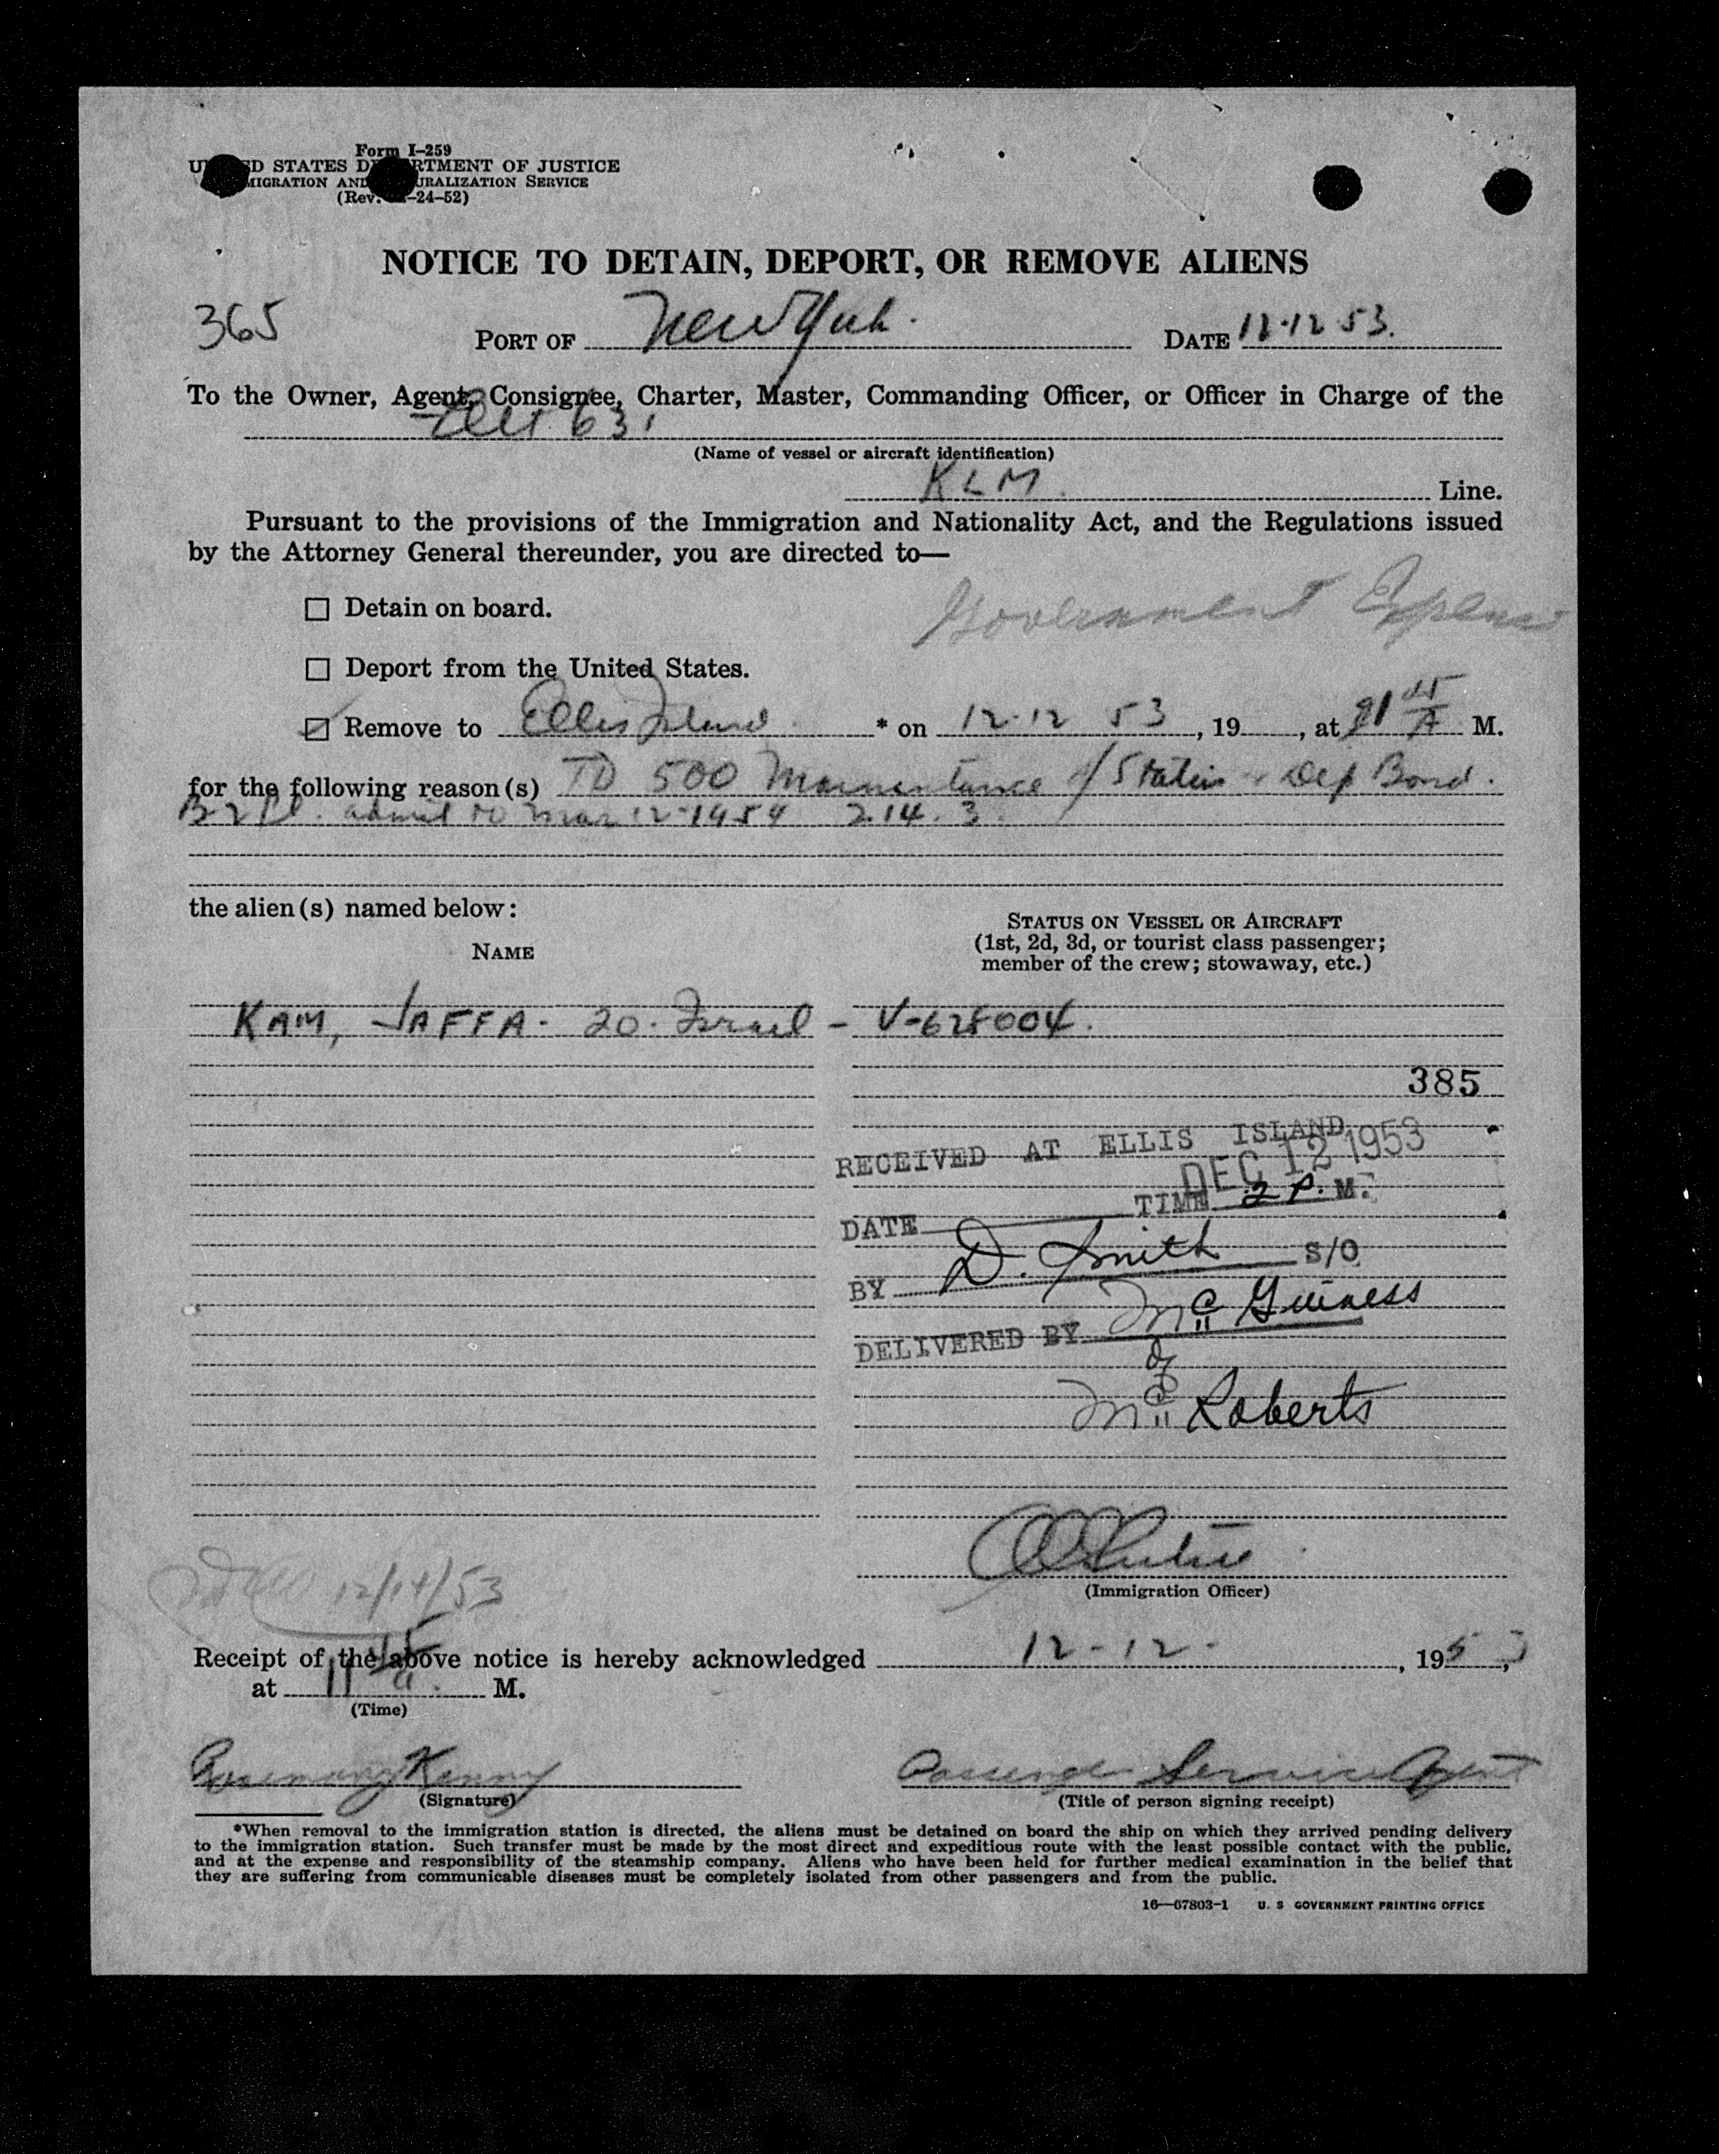 Form I-259
D STATES D RTMENT OF JUSTICE
MIGRATION AND URALIZATION SERVICE
(Rev. -24-52)
NOTICE TO DETAIN, DEPORT, OR REMOVE ALIENS
365
PORT OF New York. DATE 12-12 53.
To the Owner, Agent, Consignee, Charter, Master, Commanding Officer, or Officer in Charge of the
631
(Name of vessel or aircraft identification)
KLM Line.
Pursuant to the provisions of the Immigration and Nationality Act, and the Regulations issued
by the Attorney General thereunder, you are directed to—
Government Expense
☐ Detain on board.
☐ Deport from the United States.
☑ Remove to Ellis Island * on 12-12 53, 19, at A M.
for the following reason(s) TD 500 Maintenance of Status & Dep Bond.
B2 admit to Mar 12-1954 214.3.
the alien(s) named below:
NAME
STATUS ON VESSEL OR AIRCRAFT
(1st, 2d, 3d, or tourist class passenger;
member of the crew; stowaway, etc.)
KAM, JAFFA - 20. Israel - V-628004.
385
RECEIVED AT ELLIS ISLAND
DEC 12 1953
DATE TIME 2 P. M.
BY D. Smith S/O
DELIVERED BY McGuiness
&
McRoberts
(Immigration Officer)
12/14/53
Receipt of the above notice is hereby acknowledged 12-12-, 1953,
at 11 45 a. M.
(Time)
Rosemary Kenny Passenger Service Agent
(Signature) (Title of person signing receipt)
*When removal to the immigration station is directed, the aliens must be detained on board the ship on which they arrived pending delivery
to the immigration station. Such transfer must be made by the most direct and expeditious route with the least possible contact with the public,
and at the expense and responsibility of the steamship company. Aliens who have been held for further medical examination in the belief that
they are suffering from communicable diseases must be completely isolated from other passengers and from the public.
16—67803-1 U. S GOVERNMENT PRINTING OFFICE